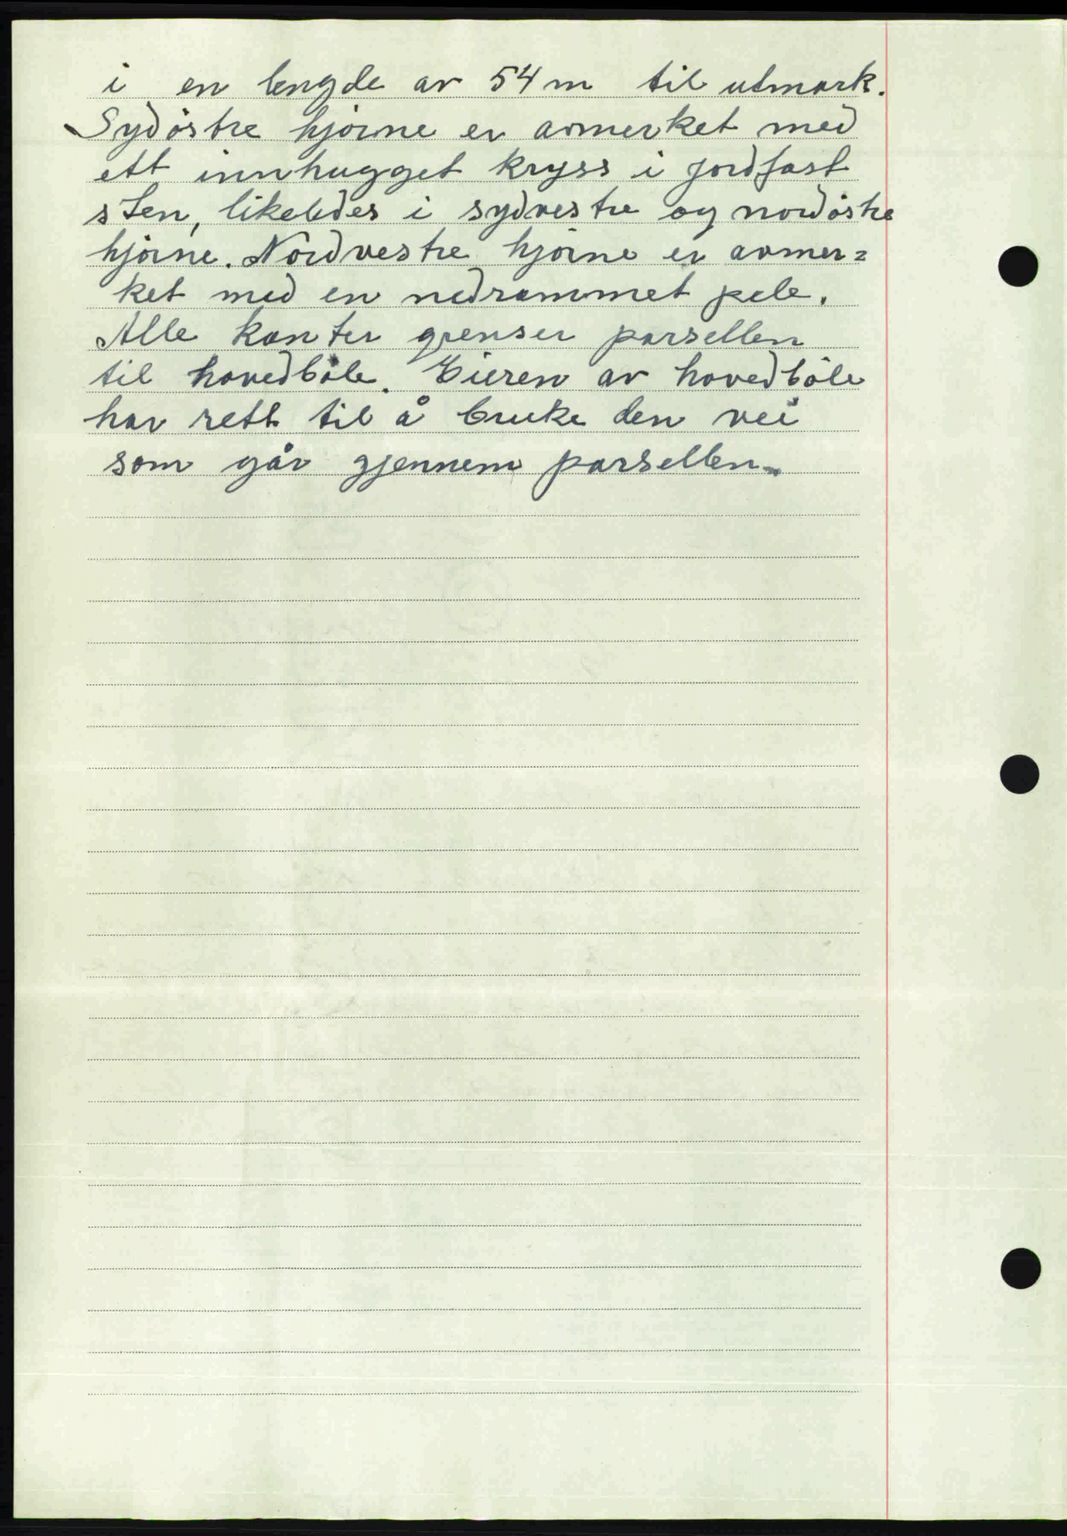 i en lengde av 54 m til utmark.
Sydöstre hjörne er avmerket med
ett innhugget kryss i jordfast
sten, likeledes i sydvestre og nordöstre
hjörne. Nordvestre hjörne er avmer=
ket med en nedrammet pele.
Alle kanter grenser parsellen
til hovedböle. Eieren av hovedböle
har rett til å bruke den vei
som går gjennem parsellen.